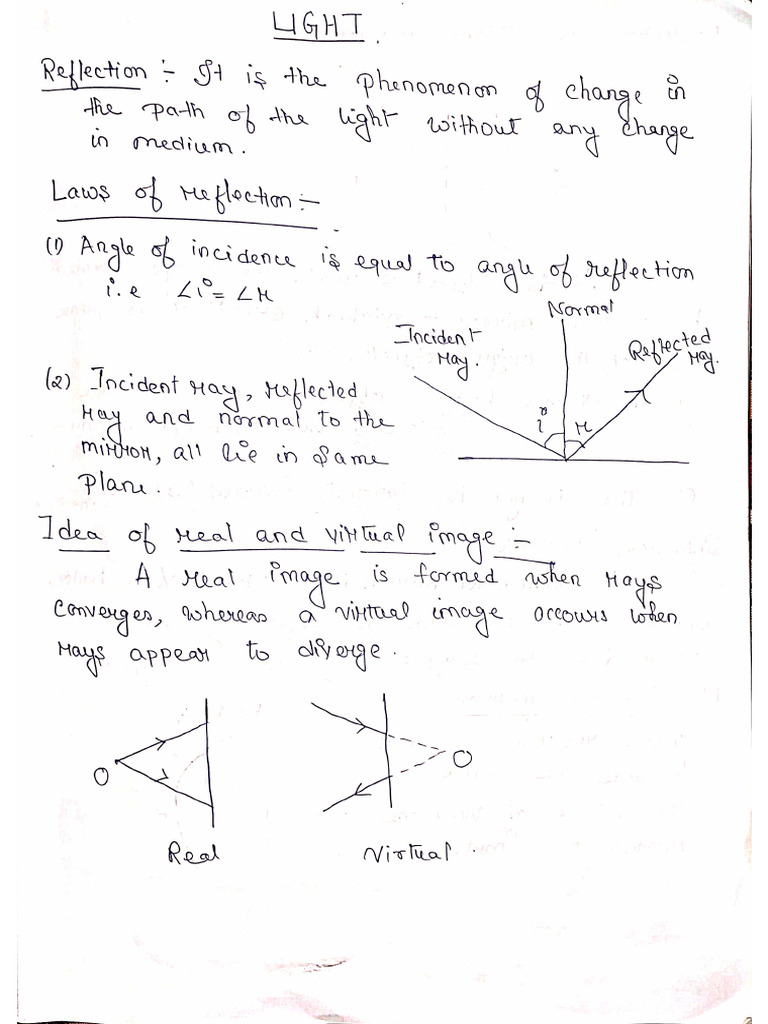 LIGHT.
Reflection :- It is the phenomenon of change in
the path of the light without any change
in medium.
Laws of reflection :-
(1) Angle of incidence is equal to angle of reflection
i.e ∠i = ∠r
Normal
Incident
ray.
Reflected
ray.
i
r
(2) Incident ray, reflected
ray and normal to the
mirror, all lie in same
plane.
Idea of real and virtual image :-
A real image is formed when rays
converges, whereas a virtual image occours when
rays appear to diverge.
O
O
Real
Virtual.